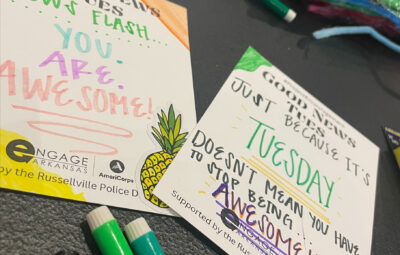 NEWS FLASH...
YOU.
ARE.
AWESOME!
engage
ARKANSAS
AmeriCorps
by the Russellville Police D
GOOD NEWS
TUES
JUST BECAUSE IT'S
TUESDAY
DOESN'T MEAN YOU HAVE
TO STOP BEING...
AWESOME!!
Supported by the Russel